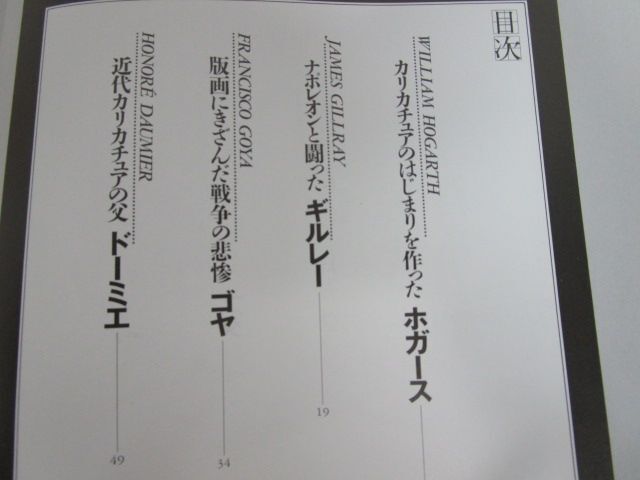 目次
WILLIAM HOGARTH
カリカチュアのはじまりを作った ホガース
JAMES GILLRAY
ナポレオンと闘った ギルレー
19
FRANCISCO GOYA
版画にきざんだ戦争の悲惨 ゴヤ
34
HONORÉ DAUMIER
近代カリカチュアの父 ドーミエ
49